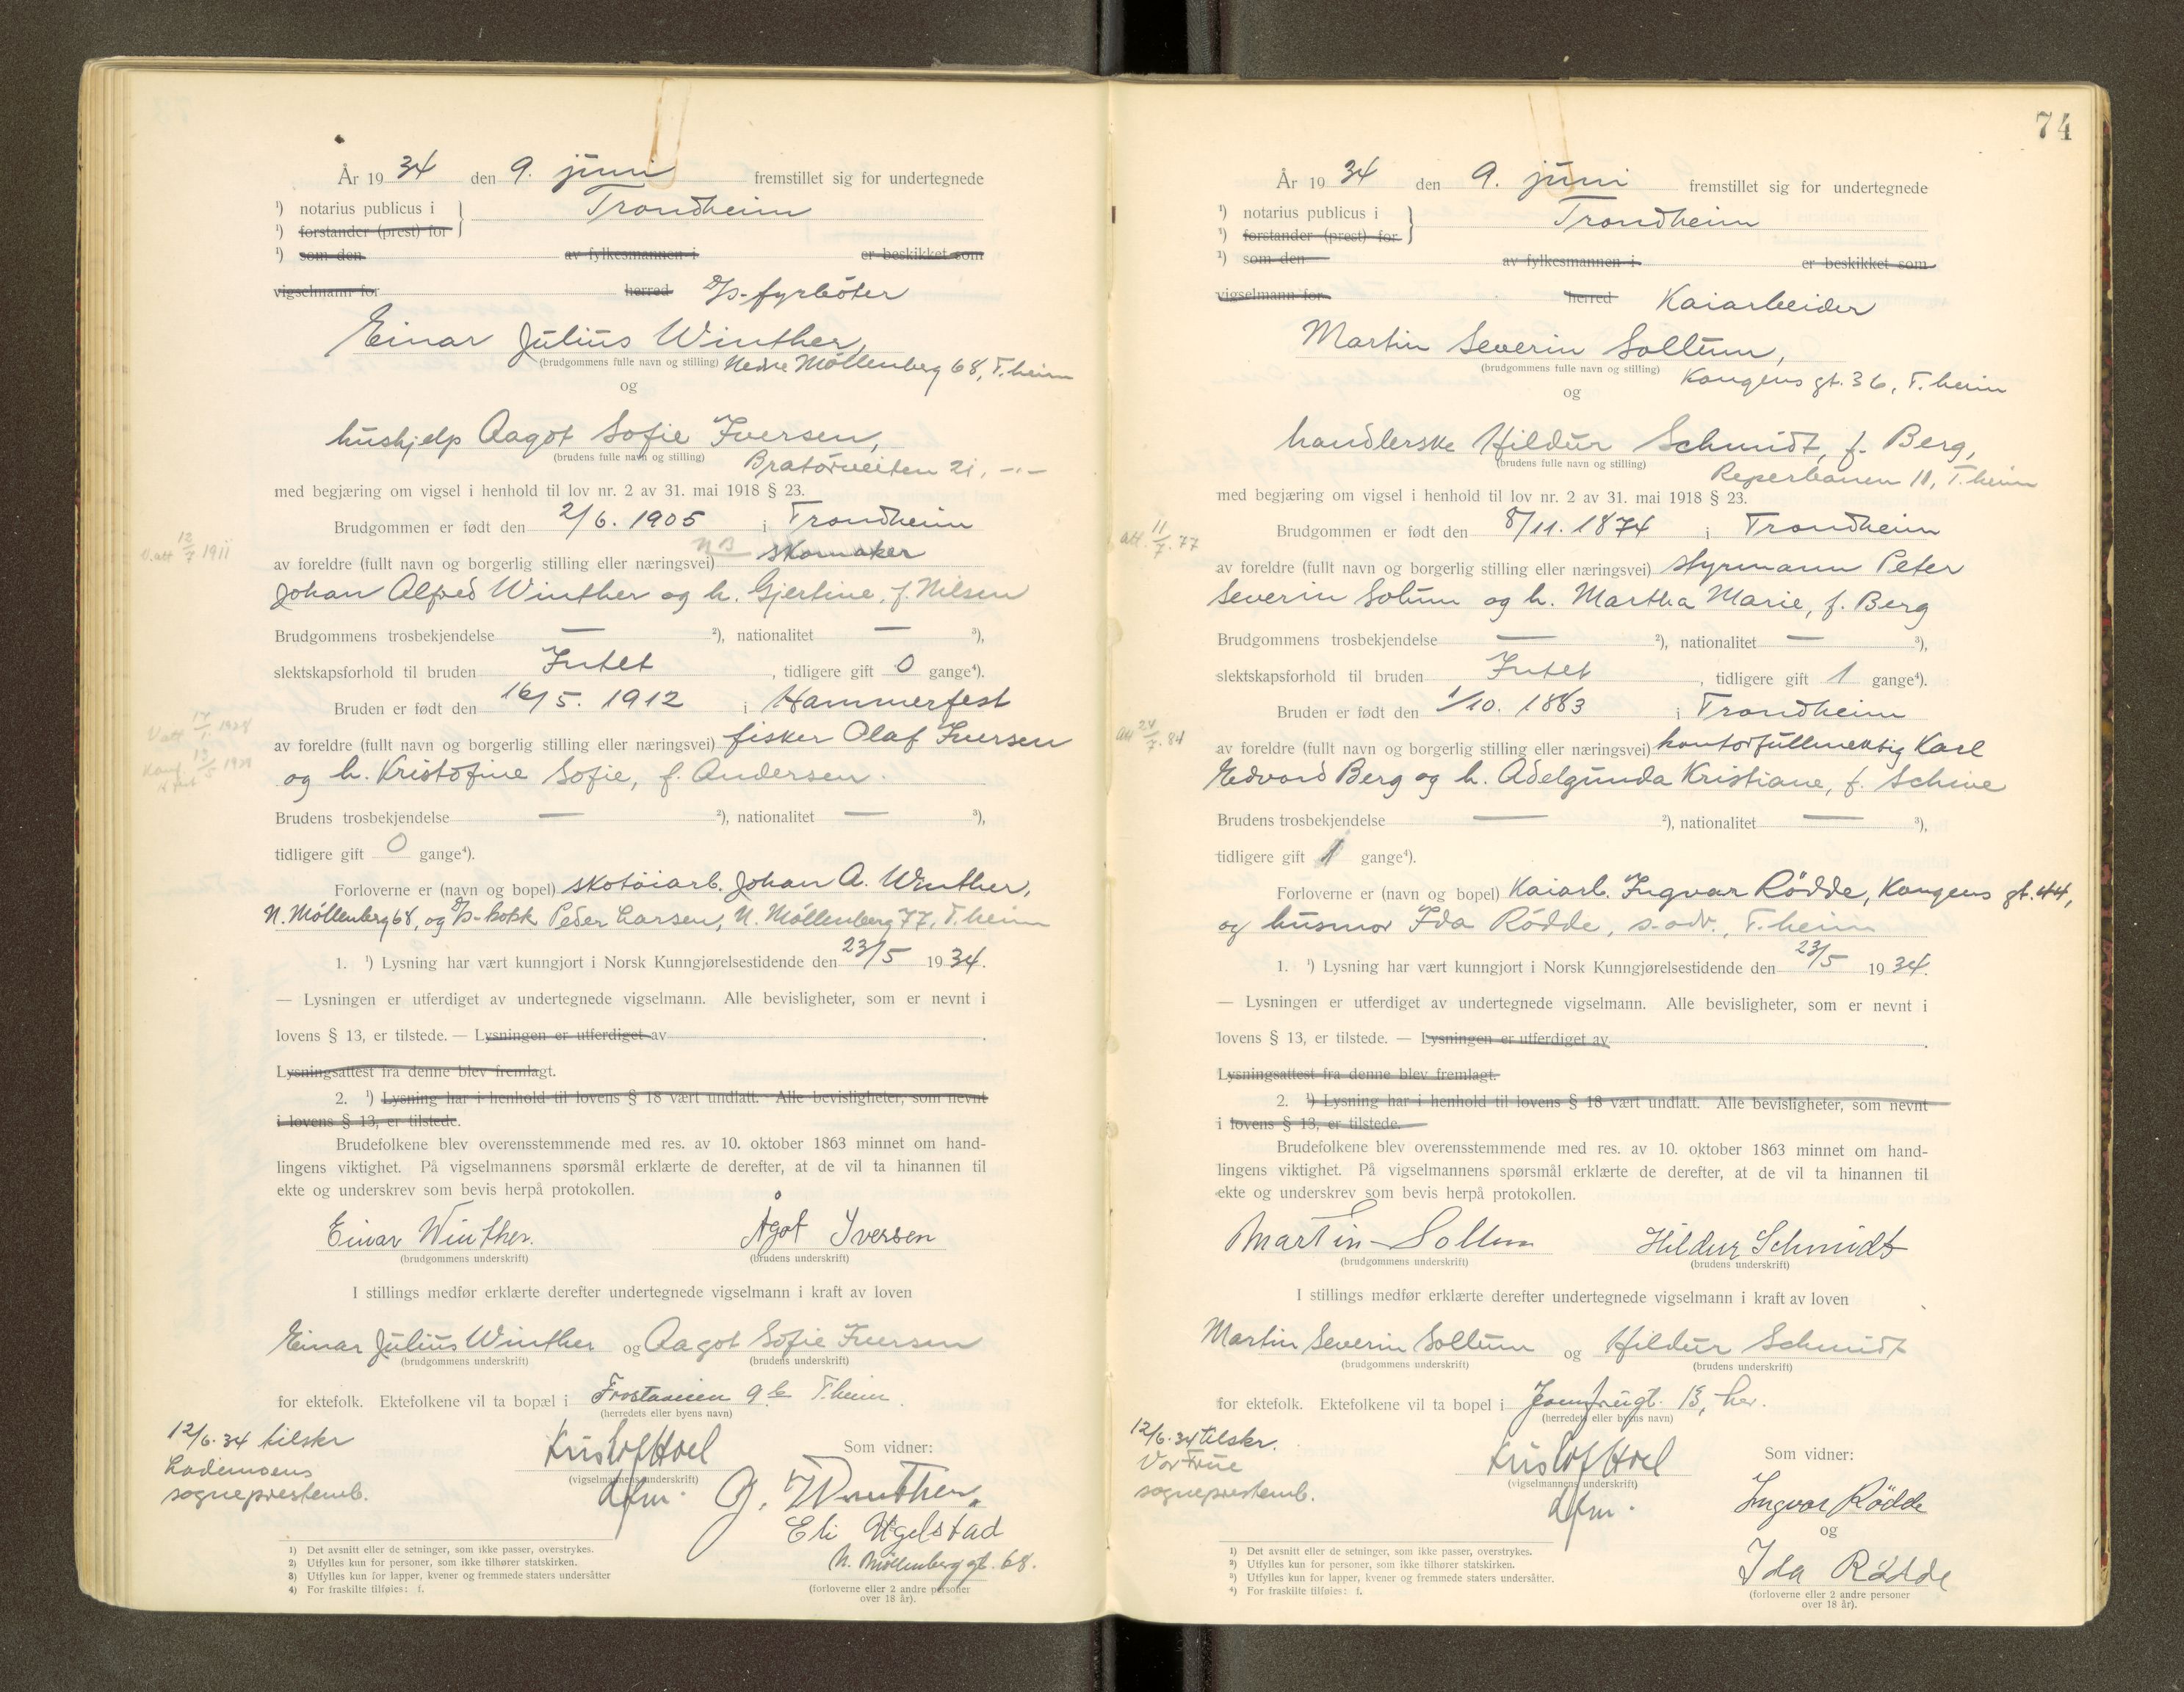 År 1934 den 9. juni fremstillet sig for undertegnede
¹) notarius publicus i } Trondheim
¹) forstander (prest) for
¹) som den av fylkesmannen i er beskikket som
vigselmann for herred D/S-fyrböter
Einar Julius Winther,
(brudgommens fulle navn og stilling) Nedre Möllenberg 68, T.heim
og
hushjelp Aagot Sofie Iversen,
(brudens fulle navn og stilling) Bratörveiten 21, -"-
med begjæring om vigsel i henhold til lov nr. 2 av 31. mai 1918 § 23.
Brudgommen er født den 2/6. 1905 i Trondheim
V.att 12/7 1911
NB
av foreldre (fullt navn og borgerlig stilling eller næringsvei) skomaker
Johan Alfred Winther og h. Gjertine, f. Nilsen
Brudgommens trosbekjendelse — ²), nationalitet — ³),
slektskapsforhold til bruden Intet, tidligere gift 0 gange⁴).
Bruden er født den 16/5. 1912 i Hammerfest
V att 17/1 1934
av foreldre (fullt navn og borgerlig stilling eller næringsvei) fisker Olaf Iversen
Konf. 13/5
og h. Kristofine Sofie, f. Andersen.
Brudens trosbekjendelse — ²), nationalitet — ³),
tidligere gift 0 gange⁴).
Forloverne er (navn og bopel) skotöiarb. Johan A. Winther,
N. Möllenberg 68, og D/S-kokk Peder Larsen, N. Möllenberg 77, T.heim
1. ¹) Lysning har vært kunngjort i Norsk Kunngjørelsestidende den 23/5 1934.
— Lysningen er utferdiget av undertegnede vigselmann. Alle bevisligheter, som er nevnt i
lovens § 13, er tilstede. — Lysningen er utferdiget av
Lysningsattest fra denne blev fremlagt.
2. ¹) Lysning har i henhold til lovens § 18 vært undlatt. Alle bevisligheter, som nevnt
i lovens § 13, er tilstede.
Brudefolkene blev overensstemmende med res. av 10. oktober 1863 minnet om hand-
lingens viktighet. På vigselmannens spørsmål erklærte de derefter, at de vil ta hinannen til
ekte og underskrev som bevis herpå protokollen.
Einar Winther. Ågot Iversen
(brudgommens underskrift) (brudens underskrift)
I stillings medfør erklærte derefter undertegnede vigselmann i kraft av loven
Einar Julius Winther og Aagot Sofie Iversen
(brudgommens underskrift) (brudens underskrift)
for ektefolk. Ektefolkene vil ta bopæl i Frostaveien 9 b T.heim.
(herredets eller byens navn)
12/6.34 tilskr
Lademoens
sogneprestemb.
Kristof Hoel
(vigselmannens underskrift)
dfm.
Som vidner:
J. Winther.
Eli Ugelstad
N. Möllenberg gt. 68.
(forloverne eller 2 andre personer
over 18 år).
1) Det avsnitt eller de setninger, som ikke passer, overstrykes.
2) Utfylles kun for personer, som ikke tilhører statskirken.
3) Utfylles kun for lapper, kvener og fremmede staters undersåtter
4) For fraskilte tilføies: f.
74
År 1934 den 9. juni fremstillet sig for undertegnede
¹) notarius publicus i } Trondheim
¹) forstander (prest) for
¹) som den av fylkesmannen i er beskikket som
vigselmann for herred Kaiarbeider
Martin Severin Sollum,
(brudgommens fulle navn og stilling) Kongens gt. 36, T.heim
og
handlerske Hildur Schmidt, f. Berg,
(brudens fulle navn og stilling) Reperbanen 11, T.heim
med begjæring om vigsel i henhold til lov nr. 2 av 31. mai 1918 § 23.
Brudgommen er født den 8/11. 1874 i Trondheim
att. 11/7.77
av foreldre (fullt navn og borgerlig stilling eller næringsvei) styrmann Peter
Severin Solum og h. Martha Marie, f. Berg
Brudgommens trosbekjendelse — ²), nationalitet — ³),
slektskapsforhold til bruden Intet, tidligere gift 1 gange⁴).
Bruden er født den 1/10. 1883 i Trondheim
att 24/7.84
av foreldre (fullt navn og borgerlig stilling eller næringsvei) kontorfullmektig Karl
Edvard Berg og h. Adelgunda Kristiane, f. Schive
Brudens trosbekjendelse — ²), nationalitet — ³),
tidligere gift 1 gange⁴).
Forloverne er (navn og bopel) Kaiarb. Ingvar Rödde, Kongens gt. 44,
og husmor Ida Rödde, s. adr., T.heim
1. ¹) Lysning har vært kunngjort i Norsk Kunngjørelsestidende den 23/5 1934.
— Lysningen er utferdiget av undertegnede vigselmann. Alle bevisligheter, som er nevnt i
lovens § 13, er tilstede. — Lysningen er utferdiget av
Lysningsattest fra denne blev fremlagt.
2. ¹) Lysning har i henhold til lovens § 18 vært undlatt. Alle bevisligheter, som nevnt
i lovens § 13, er tilstede.
Brudefolkene blev overensstemmende med res. av 10. oktober 1863 minnet om hand-
lingens viktighet. På vigselmannens spørsmål erklærte de derefter, at de vil ta hinannen til
ekte og underskrev som bevis herpå protokollen.
Martin Sollum Hildur Schmidt
(brudgommens underskrift) (brudens underskrift)
I stillings medfør erklærte derefter undertegnede vigselmann i kraft av loven
Martin Severin Sollum og Hildur Schmidt
(brudgommens underskrift) (brudens underskrift)
for ektefolk. Ektefolkene vil ta bopel i Jomfrugt. 13, her.
(herredets eller byens navn)
12/6.34 tilskr.
Vor Frue
sogneprestemb.
Kristof Hoel
(vigselmannens underskrift)
dfm.
Som vidner:
Ingvar Rödde
og
Ida Rödde
(forloverne eller 2 andre personer
over 18 år).
1) Det avsnitt eller de setninger, som ikke passer, overstrykes.
2) Utfylles kun for personer, som ikke tilhører statskirken.
3) Utfylles kun for lapper, kvener og fremmede staters undersåtter.
4) For fraskilte tilføies: f.